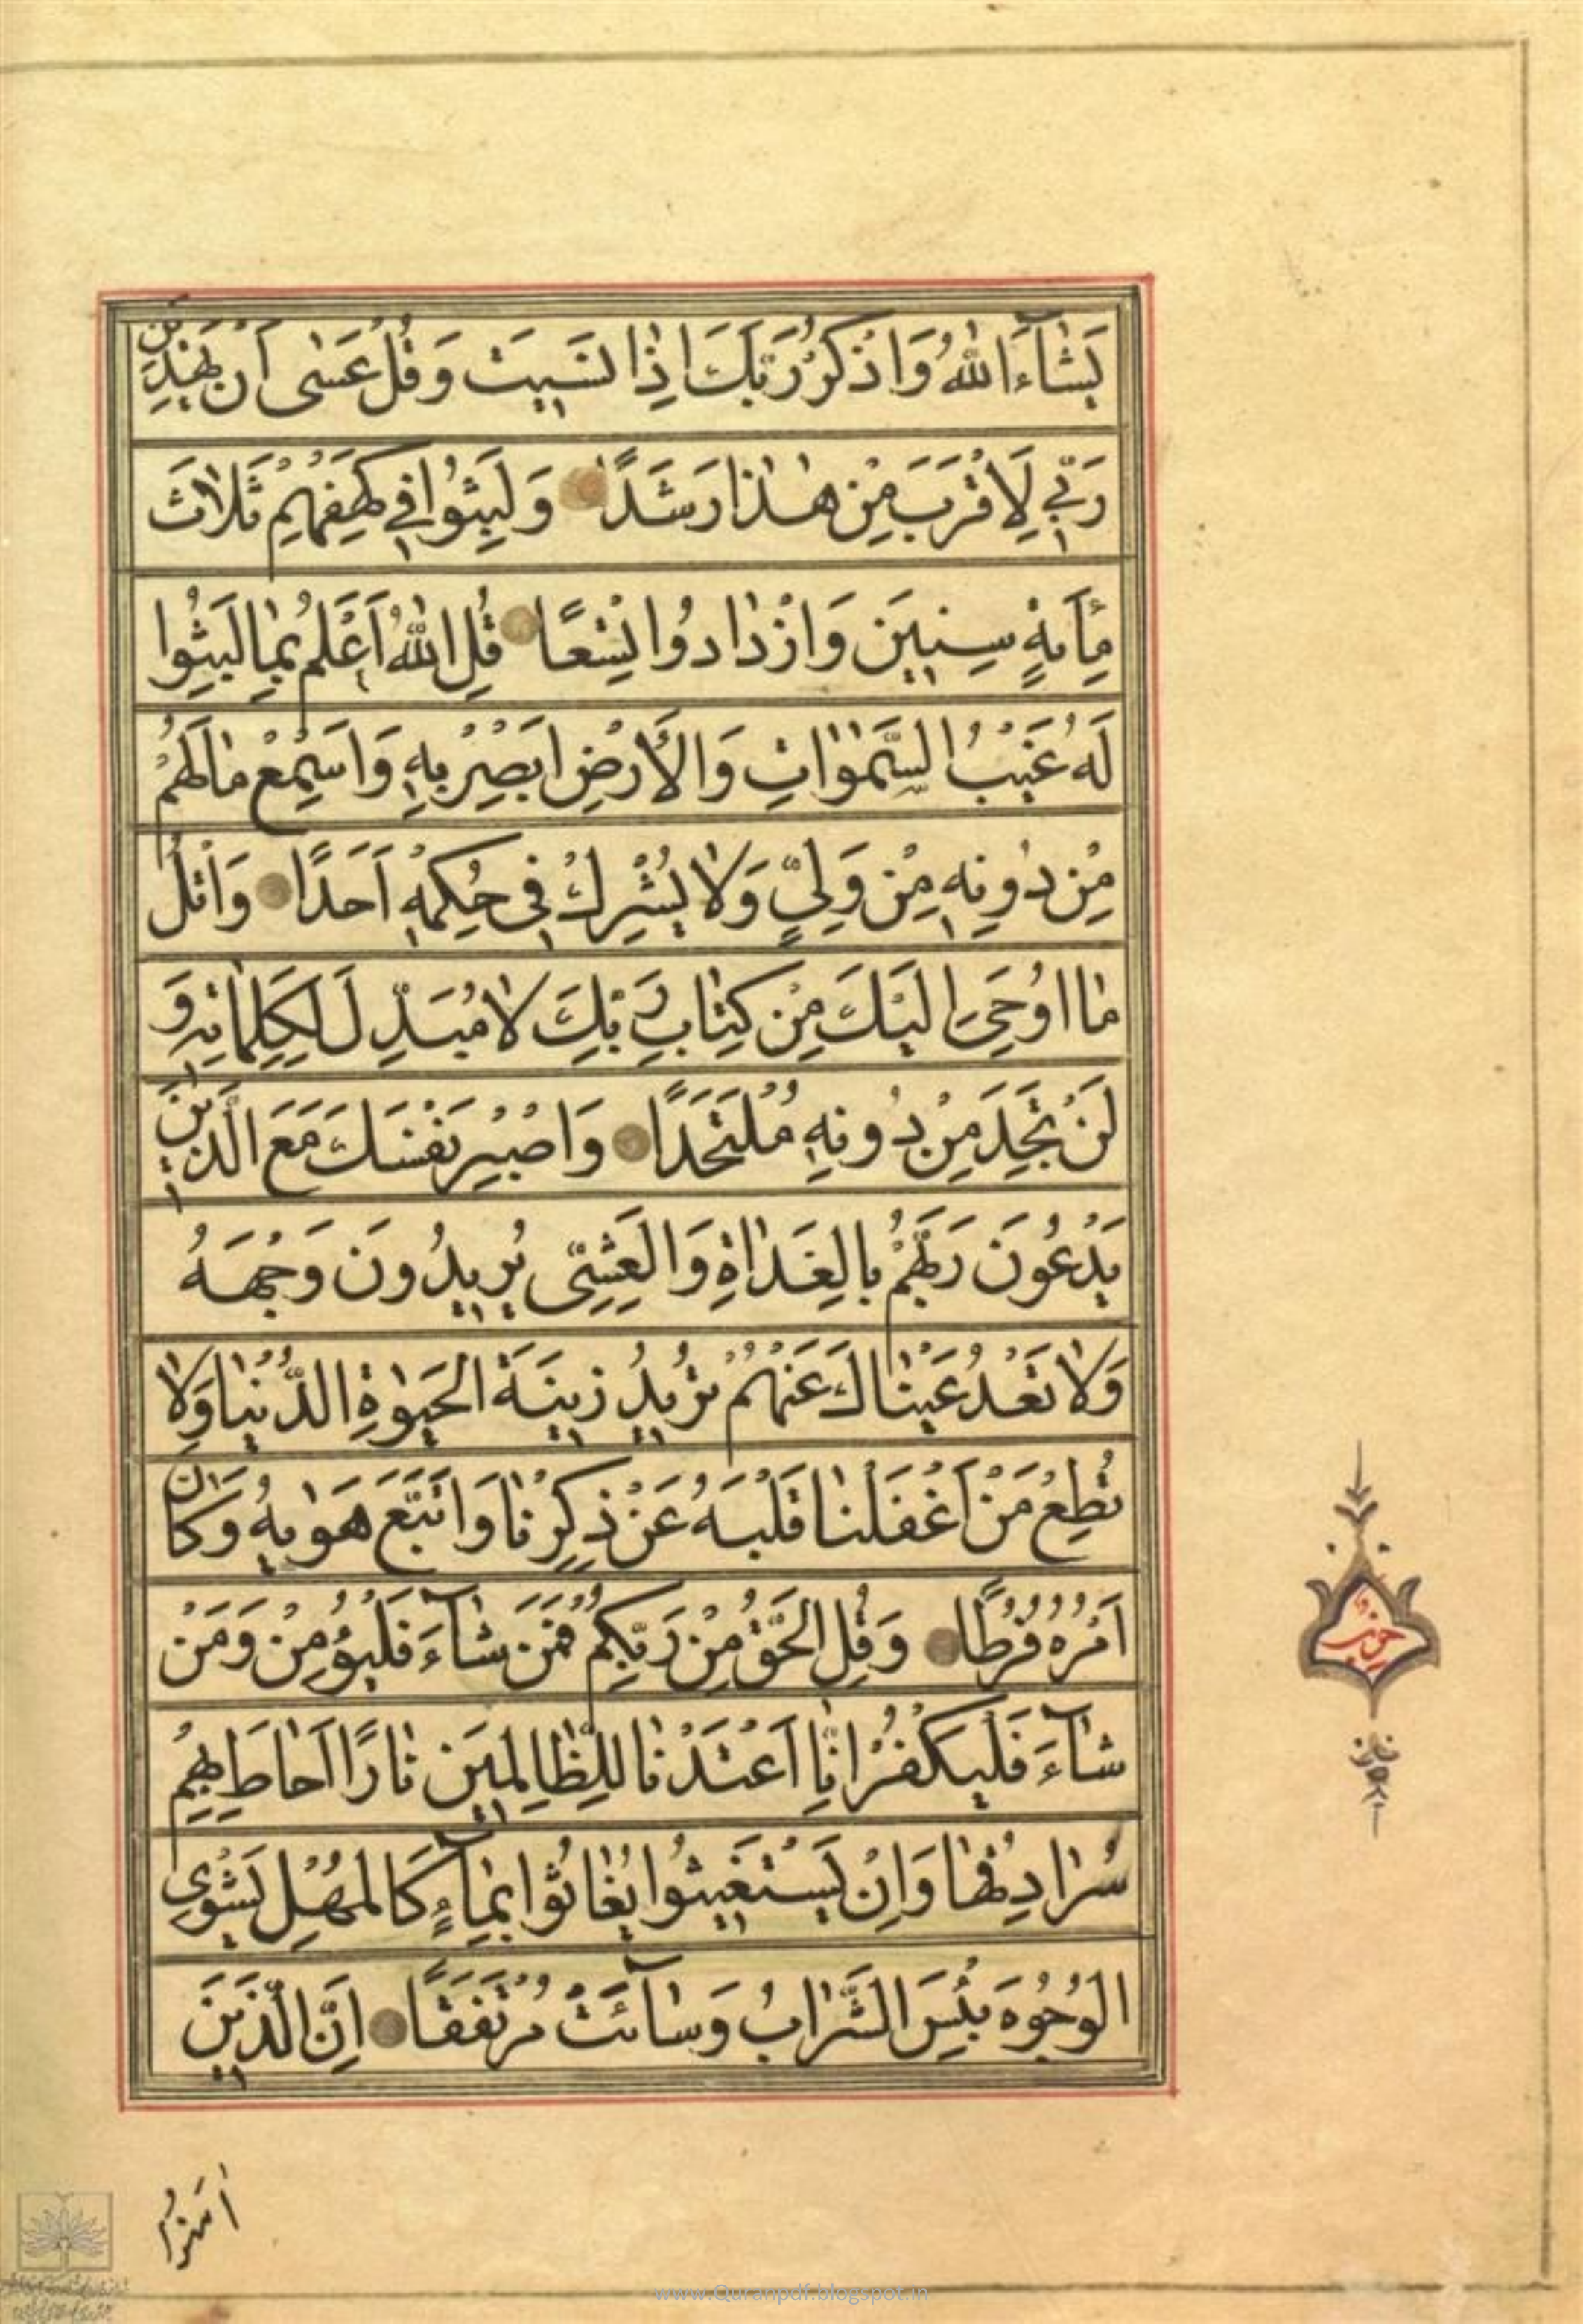 يَشَآءَ اللّٰهُ وَاذْكُرْ رَبَّكَ اِذٰا نَسٖيتَ وَقُلْ عَسٰى اَنْ يَهْدِيَنِ
رَبّٖي لِاَقْرَبَ مِنْ هٰذٰا رَشَدًا وَلَبِثُوا فٖي كَهْفِهِمْ ثَلاٰثَ
مِاَئةٍ سِنٖينَ وَازْدٰادُوا تِسْعًا قُلِ اللّٰهُ اَعْلَمُ بِمٰا لَبِثُوا
لَهُ غَيْبُ السَّمٰوٰاتِ وَالْاَرْضِ اَبْصِرْ بِهٖ وَاَسْمِعْ مٰا لَهُمْ
مِنْ دُونِهٖ مِنْ وَلِيٍّ وَلاٰ يُشْرِكُ فٖي حُكْمِهٖ اَحَدًا وَاتْلُ
مٰا اُوحِيَ اِلَيْكَ مِنْ كِتٰابِ رَبِّكَ لاٰ مُبَدِّلَ لِكَلِمٰاتِهٖ وَ
لَنْ تَجِدَ مِنْ دُونِهٖ مُلْتَحَدًا وَاصْبِرْ نَفْسَكَ مَعَ الَّذٖينَ
يَدْعُونَ رَبَّهُمْ بِالْغَدٰاةِ وَالْعَشِيِّ يُرٖيدُونَ وَجْهَهُ
وَلاٰ تَعْدُ عَيْنٰاكَ عَنْهُمْ تُرٖيدُ زٖينَةَ الْحَيٰوةِ الدُّنْيٰا وَلاٰ
تُطِعْ مَنْ اَغْفَلْنٰا قَلْبَهُ عَنْ ذِكْرِنٰا وَاتَّبَعَ هَوٰيهُ وَكَانَ
اَمْرُهُ فُرُطًا وَقُلِ الْحَقُّ مِنْ رَبِّكُمْ فَمَنْ شٰآءَ فَلْيُؤْمِنْ وَمَنْ
شٰآءَ فَلْيَكْفُرْ اِنّٰا اَعْتَدْنٰا لِلظّٰالِمٖينَ نٰارًا اَحٰاطَ بِهِمْ
سُرٰادِقُهٰا وَاِنْ يَسْتَغٖيثُوا يُغٰاثُوا بِمٰآءٍ كَالْمُهْلِ يَشْوِي
الْوُجُوهَ بِئْسَ الشَّرٰابُ وَسٰآئَتْ مُرْتَفَقًا اِنَّ الَّذٖينَ
اٰمَنُوا
حزب
www.Quranpdf.blogspot.in